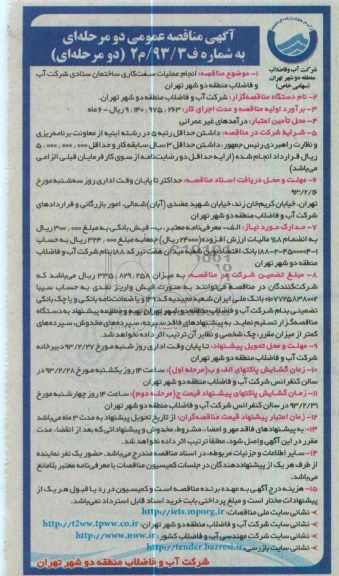 آگهی مناقصه عمومی دو مرحله‌ای
به شماره ف۹۳/۳/م۲ (دو مرحله‌ای)
شرکت آب و فاضلاب
منطقه دو شهر تهران
(سهامی خاص)
۱- موضوع مناقصه: انجام عملیات سفت‌کاری ساختمان ستادی شرکت آب
و فاضلاب منطقه دو شهر تهران
۲- نام دستگاه مناقصه‌گزار: شرکت آب و فاضلاب منطقه دو شهر تهران.
۳- برآورد اولیه مناقصه و مدت اجرای کار: ۹،۱۴۰،۹۷۵،۲۶۳ ریال - ۶ ماه
۴- محل تأمین اعتبار: درآمدهای غیر عمرانی
۵- شرایط شرکت در مناقصه: داشتن حداقل رتبه ۵ در رشته ابنیه از معاونت برنامه‌ریزی
و نظارت راهبردی رئیس جمهور، داشتن حداقل ۳ سال سابقه کار و حداقل ۵،۰۰۰،۰۰۰،۰۰۰
ریال قرارداد انجام شده (ارایه حداقل دو رضایت‌نامه از سوی کارفرمایان قبلی الزامی
می‌باشد)
۶- مهلت و محل دریافت اسناد مناقصه: حداکثر تا پایان وقت اداری روز سه‌شنبه مورخ
۹۳/۲/۱۶
تهران، خیابان کریم‌خان زند، خیابان شهید عضدی (آبان) شمالی، امور بازرگانی و قراردادهای
شرکت آب و فاضلاب منطقه دو شهر تهران
۷- مدارک مورد نیاز: الف- معرفی‌نامه معتبر، ب- فیش بانکی به مبلغ ۳۰۰،۰۰۰ ریال
به انضمام ۸٪ مالیات ارزش افزوده (۲۴۰۰۰ ریال) جمعاً به مبلغ ۳۲۴،۰۰۰ ریال به حساب
بانک اقتصاد نوین شعبه میدان هفت تیر کد ۱۸۸ بنام شرکت آب و فاضلاب
منطقه دو شهر تهران
۸- مبلغ تضمین شرکت در مناقصه: به میزان ۳۳۵،۸۲۹،۲۵۸ ریال می‌باشد که
شرکت‌کنندگان در مناقصه می‌توانند به صورت فیش واریز نقدی به حساب سیبا
بانک ملی ایران شعبه مجیدیه کد ۱۳۹ و یا ضمانت‌نامه بانکی و یا چک بانکی
تضمینی بنام شرکت آب و فاضلاب منطقه دو شهر تهران تهیه و ضمیمه پیشنهاد به دستگاه
مناقصه‌گزار تسلیم نماید. به پیشنهادهای فاقد سپرده، سپرده‌های مخدوش، سپرده‌های
کمتر از میزان مقرر، چک شخصی و نظایر آن ترتیب اثر داده نخواهد شد.
۹- مهلت و محل تحویل پیشنهاد: تا پایان وقت اداری روز شنبه مورخ ۹۳/۲/۲۷ دبیرخانه
شرکت آب و فاضلاب منطقه دو شهر تهران
۱۰- زمان گشایش پاکتهای الف و ب (مرحله اول): ساعت ۱۴ روز یکشنبه مورخ ۹۳/۲/۲۸ در
سالن کنفرانس شرکت آب و فاضلاب منطقه دو شهر تهران
۱۱- زمان گشایش پاکتهای پیشنهاد قیمت ج (مرحله دوم): ساعت ۱۴ روز چهارشنبه مورخ
۹۳/۲/۳۱ در سالن کنفرانس شرکت آب و فاضلاب منطقه دو شهر تهران
۱۲- زمان اعتبار پیشنهاد قیمت مناقصه‌گران: از تاریخ تحویل پیشنهاد به مدت ۳ ماه می‌باشد
۱۳- به پیشنهادهای فاقد مهر و امضاء، مشروط، مخدوش و پیشنهاداتی که بعد از انقضاء مدت
مقرر در این آگهی واصل شود، مطلقاً ترتیب اثر داده نخواهد شد.
۱۴- سایر اطلاعات و جزئیات مربوطه، در اسناد مناقصه مندرج می‌باشد. حضور یک نفر نماینده
از طرف هر یک از پیشنهاددهندگان در جلسات کمیسیون مناقصات با معرفی‌نامه معتبر بلامانع
می‌باشد.
۱۵- هزینه درج آگهی به عهده برنده مناقصه است و کمیسیون در رد یا قبول هر یک از
پیشنهادات مختار است و مبلغ پرداختی بابت خرید اسناد قابل استرداد نمی‌باشد.
نشانی سایت ملی مناقصات: http://iets.mporg.ir
نشانی سایت شرکت آب و فاضلاب منطقه دو شهر تهران: http://t2ww.tpww.co.ir
نشانی سایت شرکت مهندسی آب و فاضلاب کشور: http://www.nww.ir
نشانی سایت بازرسی: http://tender.bazresi.ir
شرکت آب و فاضلاب منطقه دو شهر تهران